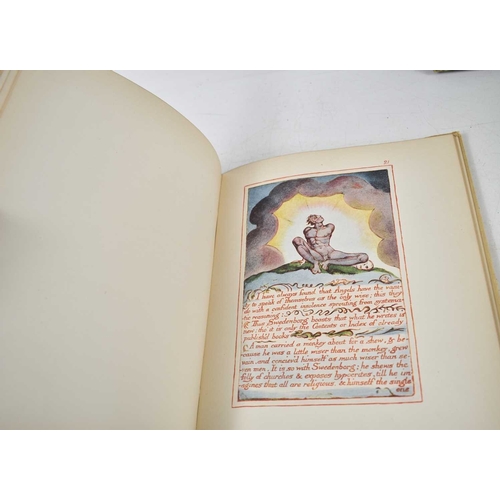 21
I have always found that Angels have the vani-
ty to speak of themselves as the only wise; this they
do with a confident insolence sprouting from systematic
reasoning:
Thus Swedenborg boasts that what he writes is
new; tho it is only the Contents or Index of already
publish'd books
A man carried a monkey about for a shew, & be-
cause he was a little wiser than the monkey, grew
vain, and conciev'd himself as much wiser than se-
ven men. It is so with Swedenborg; he shews the
folly of churches & exposes hypocrites, till he im-
agines that all are religious, & himself the single